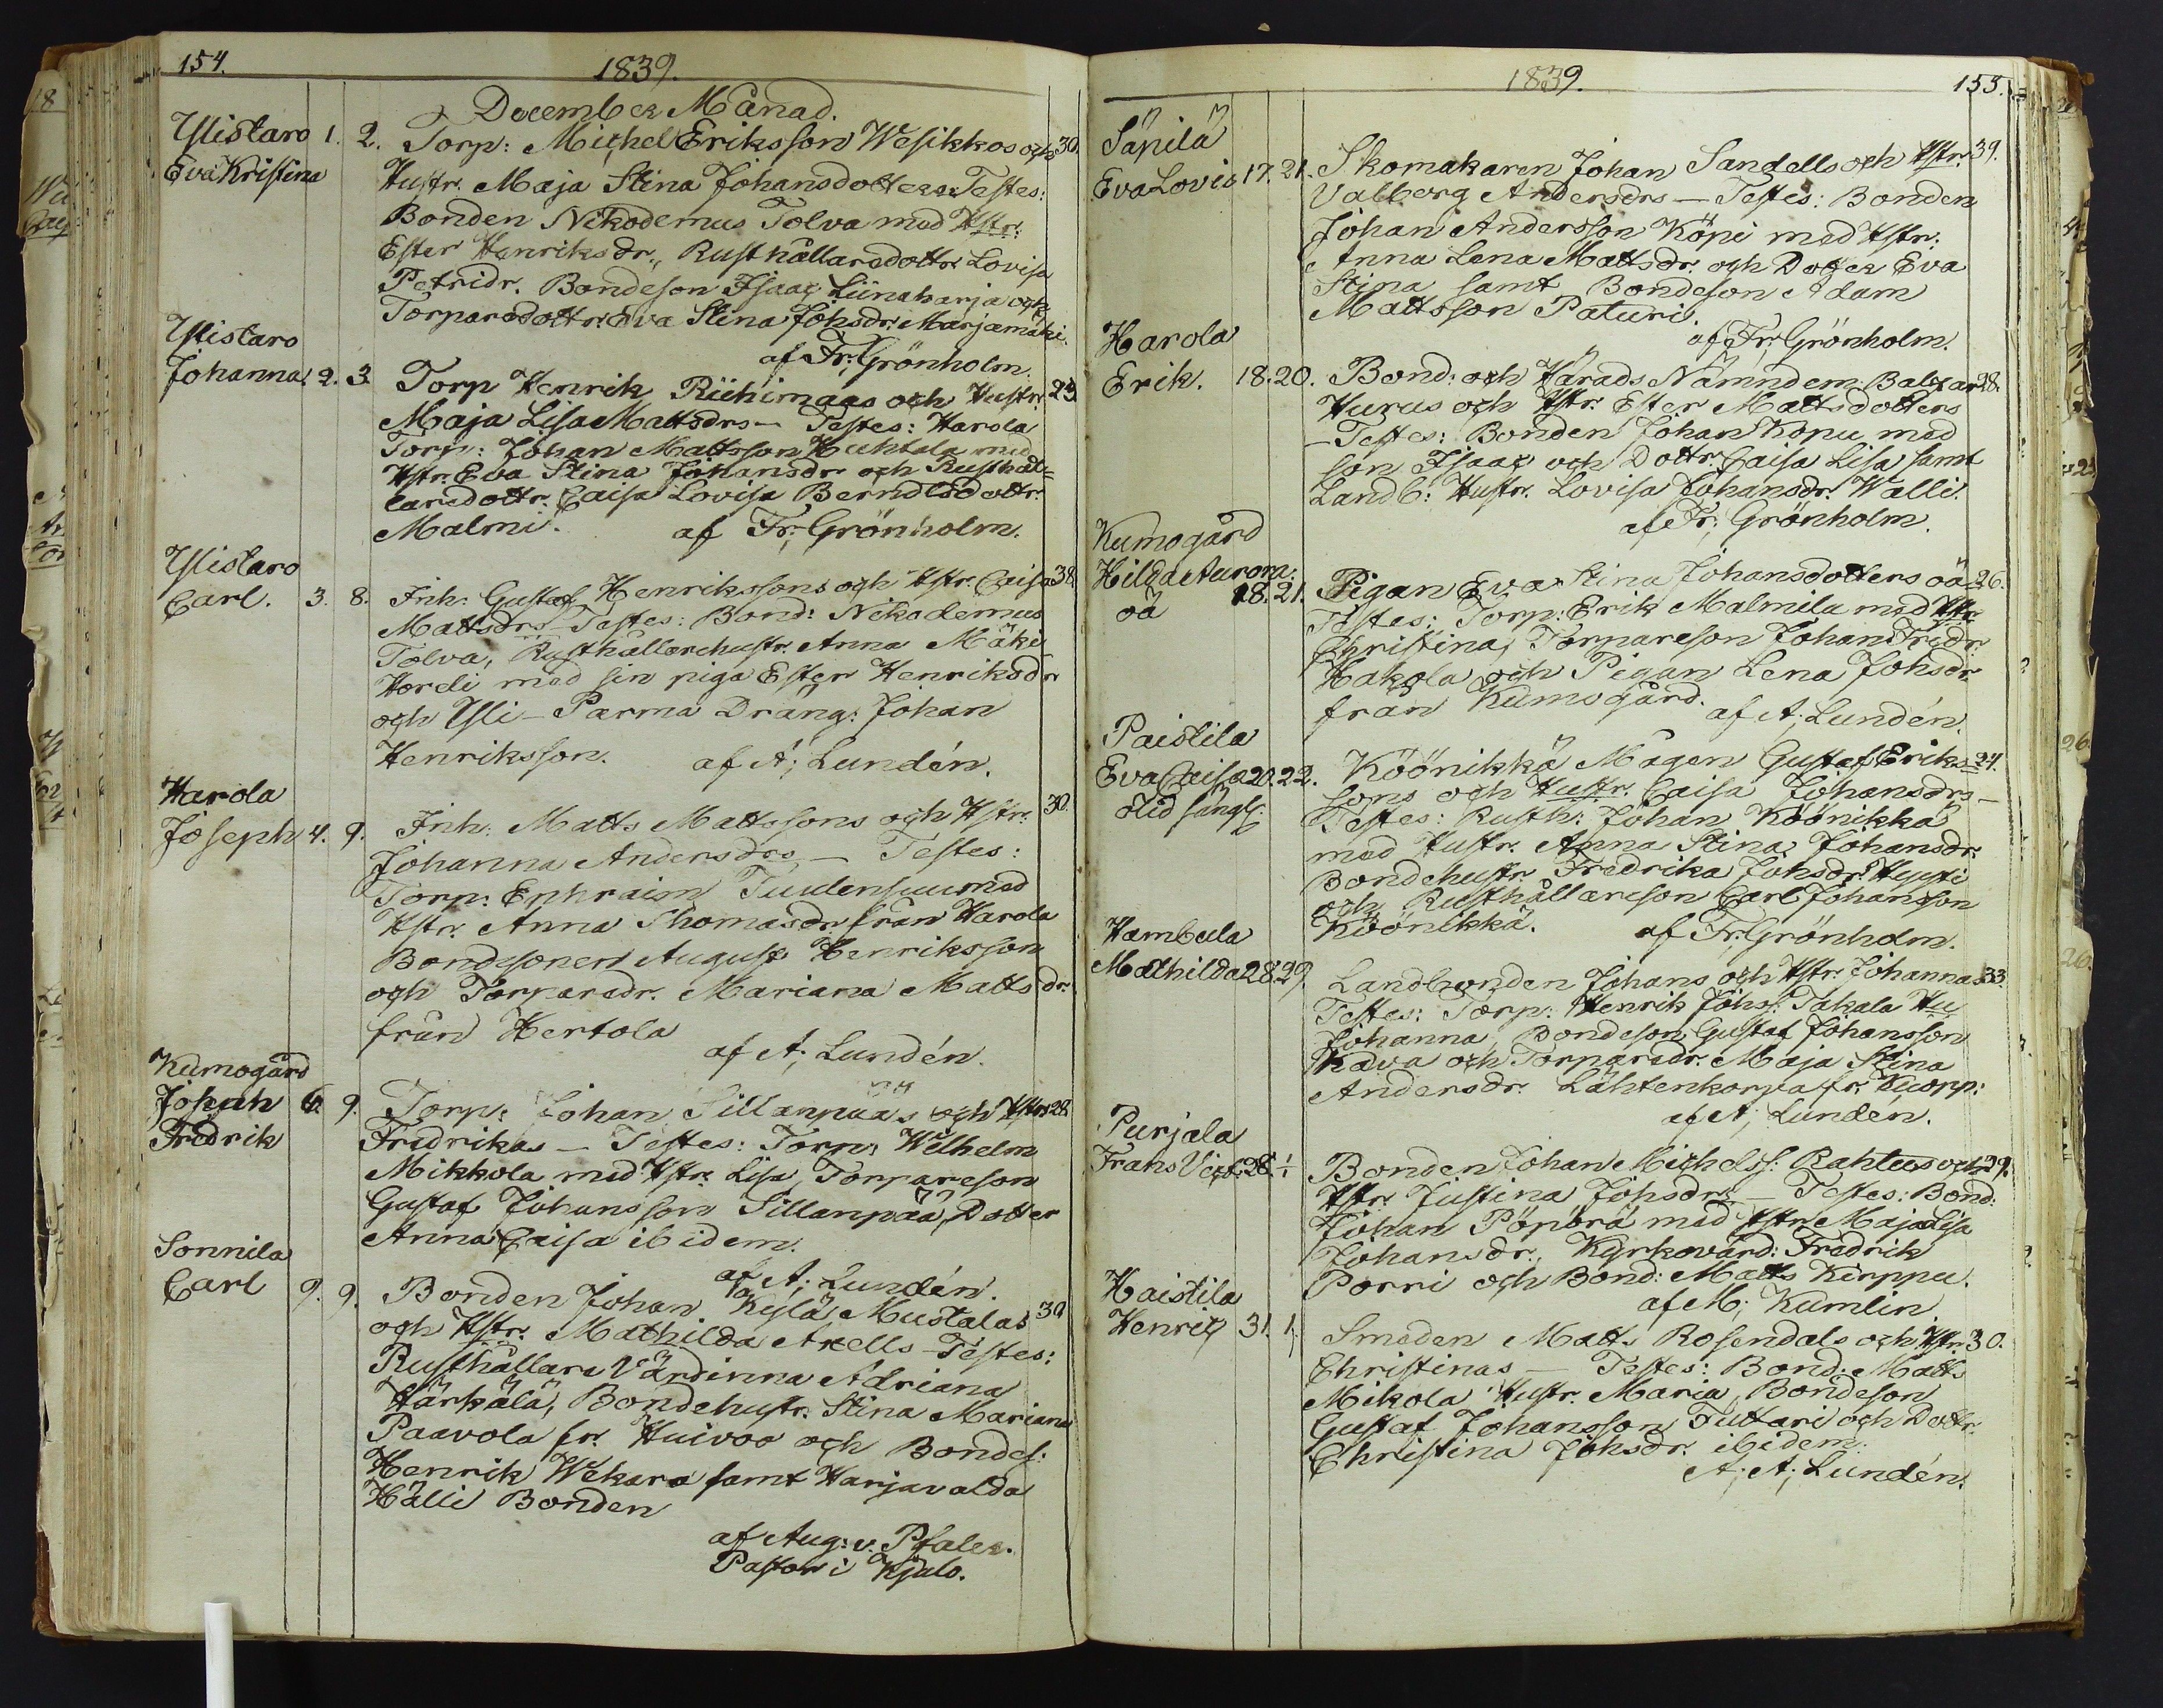 154.
1839.
December Månad.
Ylistaro 1. 2. Torp: Michel Eriksson Wesikkos och 30.
Eva Kristina Hustr. Maja Stina Johansdotters Testes:
Bonden Nikodemus Tolva med Hstr.
Ester Henriksdr, Rusthållaredottr. Lovisa
Petridr. Bondeson Isaac Liinaharja och
Torparedottr. Eva Stina Johsdr. Marjamäki.
af Fr: Grönholm.
Ylistaro
Johanna. 2. 3. Torp Henrik Riihimaas och Hustr. 23.
Maja Lisa Mattsdrs — Testes: Harola
Torp: Johan Mattsson Huhtala med
Hstr. Eva Stina Johansdr och Rusthål-
laredottr. Caisa Lovisa Berndtsdottr.
Malmi. af Fr: Grönholm.
Ylistaro
Carl. 3. 8. Inh: Gustaf Henrikssons och Hstr. Caisa 38.
Mattsdrs Testes: Bond: Nikodemus
Tolva, Rusthållarehustr. Anna Mäki
Hordi med sin piga Ester Henriksdr
och Yli-Parma Dräng: Johan
Henriksson. af A; Lundén.
Harola
Joseph 4. 9. Inh: Matts Mattssons och Hstr. 30.
Johanna Andersdrs — Testes:
Torp: Ephraim Tuulensuu med
Hstr. Anna Thomasdr. från Harola
Bondesonen August Henriksson
och Torparedr. Mariana Mattsdr.
från Hertola
af A; Lundén.
Kumogård
Joseph 6. 9. Torp: Johan Sillanpääs och Hstrs 28.
Fredrik Fredrikas — Testes: Torp: Wilhelm
Mikkola med Hstr. Lisa, Torpareson
Gustaf Johansson Sillanpää, Dotter
Anna Caisa ibidem.
af A; Lundén.
Sonnila
Carl 9. 9. Bonden Johan Kylä Mustalas 30
och Hstr. Mathilda Axells — Testes:
Rusthållare Värdinna Adriana
Härkälä, Bondehustr. Stina Mariana
Paavola fr. Huivoo och Bondes:
Henrik Wekara samt Harjavalda
Hälli Bonden
af Aug: v. Pfaler.
Pastor i Kjulo.
1839. 155.
Säpilä
Eva Lovis 17. 21. Skomakaren Johan Sandells och Hstr. 39.
Valborg Andersdrs — Testes: Bonden
Johan Andersson Köpi med Hstr.
Anna Lena Mattsdr. och Dotter Eva
Stina samt Bondeson Adam
Mattsson Paturi.
af Fr; Grönholm.
Harola
Erik. 18. 20. Bond: och Härads Nämndem: Baltzar 28.
Hurus och Hstr. Ester Mattsdotters
— Testes: Bonden Johan Kopu med
son Isaac och Dottr. Caisa Lisa samt
Landb: Hustr. Lovisa Johansdr. Walli.
af Fr; Grönholm.
Kumogård
Hilda Aurora 18. 21. Pigan Eva Stina Johansdotters oä 26.
oä Testes: Torp: Erik Malmila med Hstr.
Christina, Torpareson Johan Fredr.
Hakola och Pigan Lena Johsdr.
från Kumogård. af A; Lundén.
Paistila
Eva Caisa 20. 22. Köönikkä Mågen Gustaf Eriks- 24.
sons och Hustr. Caisa Johansdrs —
Testes: Rusth: Johan Köönikkä
med Hustr. Anna Stina Johansdr.
Bondehustr. Fredrika Johsdr. Hyysti
och Rusthållareson Carl Johansson
Köönikkä. af Fr; Grönholm.
Hambula
Mathilda 28. 29. Landbonden Johans och Hstr. Johannas 33.
Testes: Torp: Henrik Johs: Takala Hu
Johanna, Bondeson Gustaf Johansson
Kadva och Torparedr. Maja Stina
Andersdr. Lähtenkorpa fr.
af A; Lundén.
Purjala
Frans Vict. 28. Bonden Johan Michelss: Rahtus och 29.
Hstr. Justina Johsdrs — Testes: Bond:
Johan Pöpörä med Hstr. Maja Lisa
Johansdr., Kyrkovärd: Fredrik
Porri och Bond: Matts Kirppu.
af M; Kumlin
Haistila
Henric 31. 1. Smeden Matts Rosendals och Hstr. 30.
Christinas — Testes: Bond: Matts
Mikola Hustr. Maria, Bondeson
Gustaf Johansson Tuttari och Dottr.
Christina Johsdr. ibidem.
A; A; Lundén.